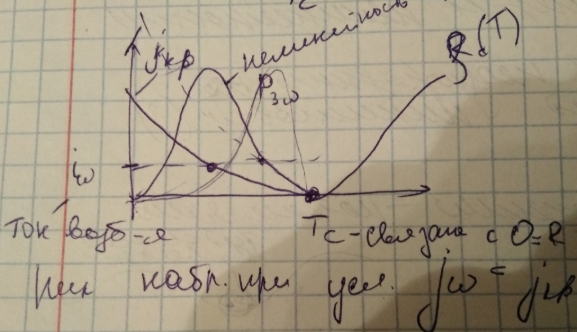 c
jкр нелинейность R(T)
P3ω
iω
ток возб-я Tc - связана с O=R
пик набл. при усл. jω = jкр